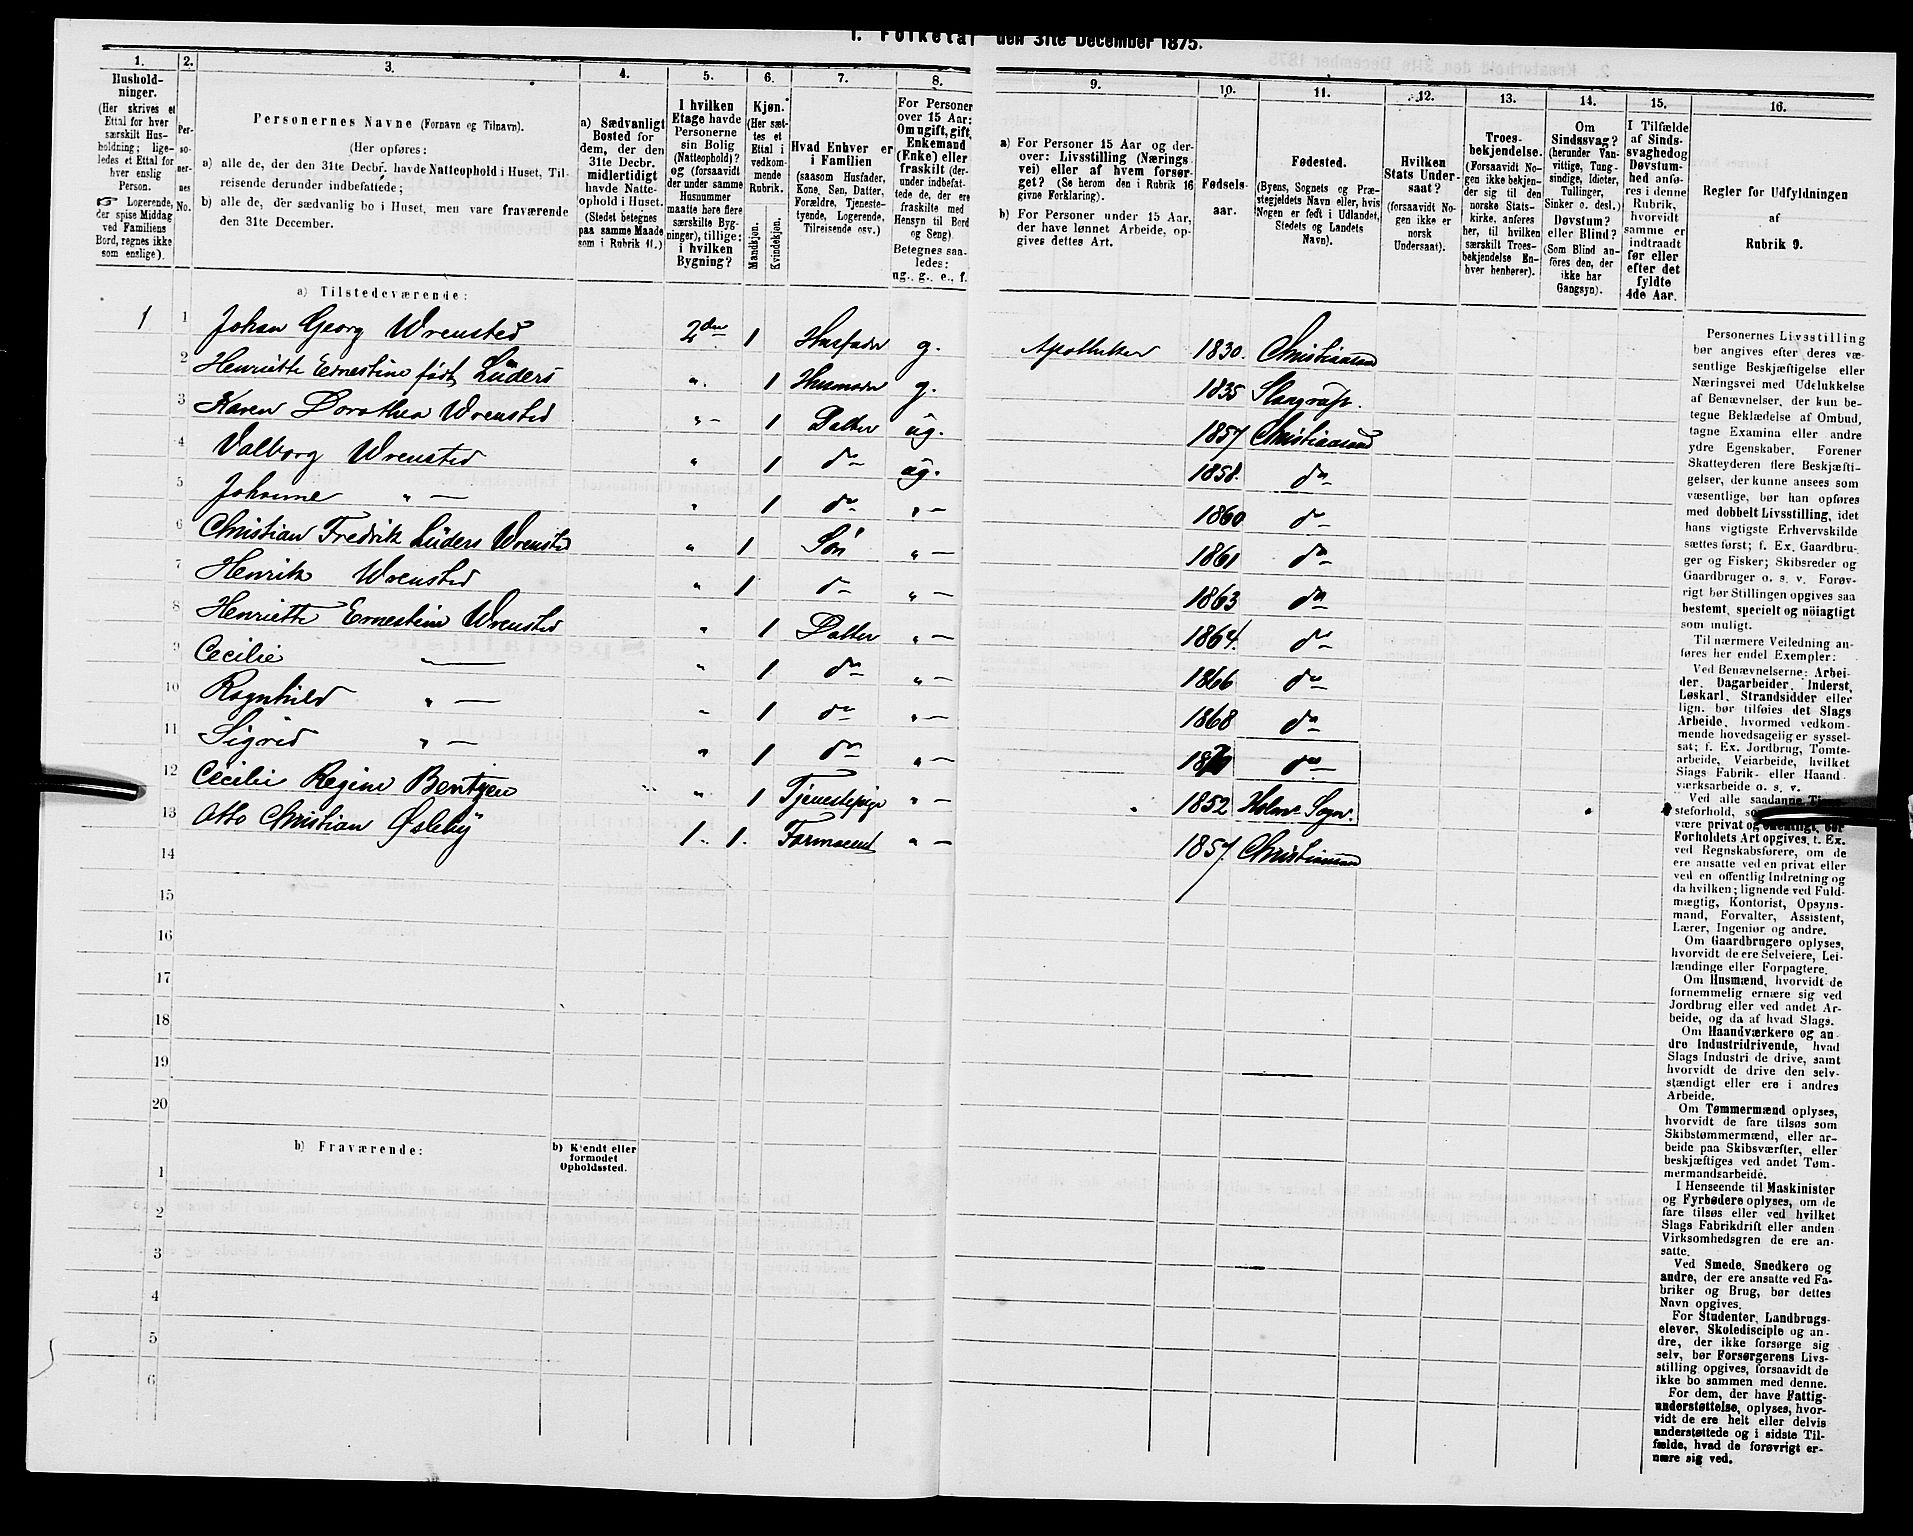 1. Folketal den 31te December 1875.
1. 2. 3. 4. 5. 6. 7. 8. 9. 10. 11. 12. 13. 14. 15. 16.
Hushold-
ninger.
(Her skrives et
Ettal for hver
særskilt Hus-
holdning; lige-
ledes et Ettal for
hver enslig
Person.
☞ Logerende,
der spise Middag
ved Familiens
Bord, regnes ikke
som enslige).
Per-
so-
ner-
nes
No.
Personernes Navne (Fornavn og Tilnavn).
(Her opføres:
a) alle de, der den 31te Decbr. havde Natteophold i Huset, Til-
reisende derunder indbefattede;
b) alle de, der sædvanlig bo i Huset, men vare fraværende
den 31te December.
a) Sædvanligt
Bosted for
dem, der den
31te Decbr.
midlertidigt
havde Natte-
ophold i Huset.
(Stedet betegnes
paa samme Maade
som i Rubrik 11.)
I hvilken
Etage havde
Personerne
sin Bolig
(Natteophold)?
og (forsaavidt
der under samme
Husnummer
maatte høre flere
særskilte Byg-
ninger), tillige:
i hvilken
Bygning?
Kjøn.
(Her sæt-
tes et
Ettal i
vedkom-
mende
Rubrik.
Mandkjøn.
Kvindekjøn.
Hvad Enhver er
i Familien
(saasom Husfader,
Kone, Søn, Datter,
Forældre, Tjeneste-
tyende, Logerende,
Tilreisende osv.)
For Personer
over 15 Aar:
Om ugift, gift,
Enkemand
(Enke) eller
fraskilt (der-
under indbefat-
tede de, der ere
fraskilte med
Hensyn til Bord
og Seng).
Betegnes saa-
ledes:
ug., g., e., f.
a) For Personer 15 Aar og der-
over: Livsstilling (Nærings-
vei) eller af hvem forsør-
get? (Se herom den i Rubrik 16
givne Forklaring).
b) For Personer under 15 Aar,
der have lønnet Arbeide, op-
gives dettes Art.
Fødsels-
aar.
Fødested.
(Byens, Sognets og Præ-
stegjeldets Navn eller, hvis
Nogen er født i Udlandet,
Stedets og Landets
Navn).
Hvilken
Stats Under-
saat?
(forsaavidt No-
gen ikke er
norsk
Undersaat).
Troes-
bekjendelse.
(Forsaavidt No-
gen ikke bekjen-
der sig til den
norske Stats-
kirke, anføres
her, til hvilken
særskilt Troes-
bekjendelse En-
hver henhører).
Om
Sindssvag?
(herunder Van-
vittige, Tung-
sindige, Idioter,
Tullinger,
Sinker o. desl.)
Døvstum?
eller Blind?
(Som Blind an-
føres den, der
ikke har
Gangsyn).
I Tilfælde
af Sinds-
svaghed og
Døvstum-
hed anfø-
res i denne
Rubrik,
hvorvidt
samme er
indtraadt
før eller
efter det
fyldte
4de Aar.
Regler for Udfyldningen
af
Rubrik 9.
a) Tilstedeværende:
1 1 Johan Georg Wrensted 2den 1 Husfader g. Apotheker 1830. Christiansand
2 Henriette Ernestine født Lüders " 1 Husmoder g. 1835
3 Karen Dorothea Wrensted " 1 Datter ug. 1857 Christiansand
4 Valborg Wrensted " 1 do ug. 1858. do
5 Johanne " " 1 do " 1860 do
6 Christian Fredrik Lüders Wrensted " 1 Søn " 1861 do
7 Henrik Wrensted " 1 do " 1863 do
8 Henriette Ernestine Wrensted " 1 Datter " 1864. do
9 Cecilie " " 1 do " 1866 do
10 Ragnhild " " 1 do " 1868 do
11 Sigrid " " 1 do " do
12 Cecilie Regine Bentzen " " 1 Tjenestepige " " 1852. Holme Sogn. "
13 Otto Christian Øsleby 1. 1. " 1857. Christiansand
14
15
16
17
18
19
20
b) Fraværende:
b) Kjendt eller
formodet
Opholdssted.
1
2
3
4
5
6
Personernes Livsstilling
bør angives efter deres væ-
sentlige Beskjæftigelse eller
Næringsvei med Udelukkelse
af Benævnelser, der kun be-
tegne Beklædelse af Ombud,
tagne Examina eller andre
ydre Egenskaber. Forener
Skatteyderen flere Beskjæfti-
gelser, der kunne ansees som
væsentlige, bør han opføres
med dobbelt Livsstilling, idet
hans vigtigste Erhvervskilde
sættes først; f. Ex. Gaardbru-
ger og Fisker; Skibsreder og
Gaardbruger o. s. v. Forøv-
rigt bør Stillingen opgives saa
bestemt, specielt og nøiagtigt
som muligt.
Til nærmere Veiledning an-
føres her endel Exempler:
Ved Benævnelserne: Arbei-
der, Dagarbeider, Inderst,
Løskarl, Strandsidder eller
lign. bør tilføies det Slags
Arbeide, hvormed vedkom-
mende hovedsagelig er syssel-
sat; f. Ex. Jordbrug, Tomte-
arbeide, Veiarbeide, hvilket
Slags Fabrik- eller Haand
værksarbeide o. s. v.
Ved alle saadanne
steforhold,
være privat og offentligt, bør
Forholdets Art opgives, f. Ex.
ved Regnskabsførere, om de
ere ansatte ved en privat eller
ved en offentlig Indretning og
da hvilken; lignende ved Fuld-
mægtig, Kontorist, Opsyns-
mand, Forvalter, Assistent,
Lærer, Ingeniør og andre.
Om Gaardbrugere oplyses,
hvorvidt de ere Selveiere, Lei-
lændinge eller Forpagtere.
Om Husmænd, hvorvidt de
fornemmelig ernære sig ved
Jordbrug eller ved andet Ar-
beide, og da af hvad Slags.
Om Haandværkere og an-
dre Industridrivende, hvad
Slags Industri de drive, samt
hvorvidt de drive den selv-
stændigt eller ere i andres
Arbeide.
Om Tømmermænd oplyses,
hvorvidt de fare tilsøs som
Skibstømmermænd, eller ar-
beide paa Skibsværfter, eller
beskjæftiges ved andet Tøm-
mermandsarbeide.
I Henseende til Maskinister
og Fyrbødere oplyses, om de
fare tilsøs eller ved hvilket
Slags Fabrikdrift eller anden
Virksomhedsgren de ere an-
satte.
Ved Smede, Snedkere og
andre, der ere ansatte ved Fa-
briker og Brug, bør dettes
Navn opgives.
For Studenter, Landbrugs-
elever, Skoledisciple og an-
dre, der ikke forsørge sig
selv, bør Forsørgerens Livs-
stilling opgives, forsaavidt de
ikke bo sammen med denne.
For dem, der have Fattig-
understøttelse, oplyses, hvor-
vidt de ere helt eller delvis
understøttede og i sidste Til-
fælde, hvad de forøvrigt er-
nære sig ved.